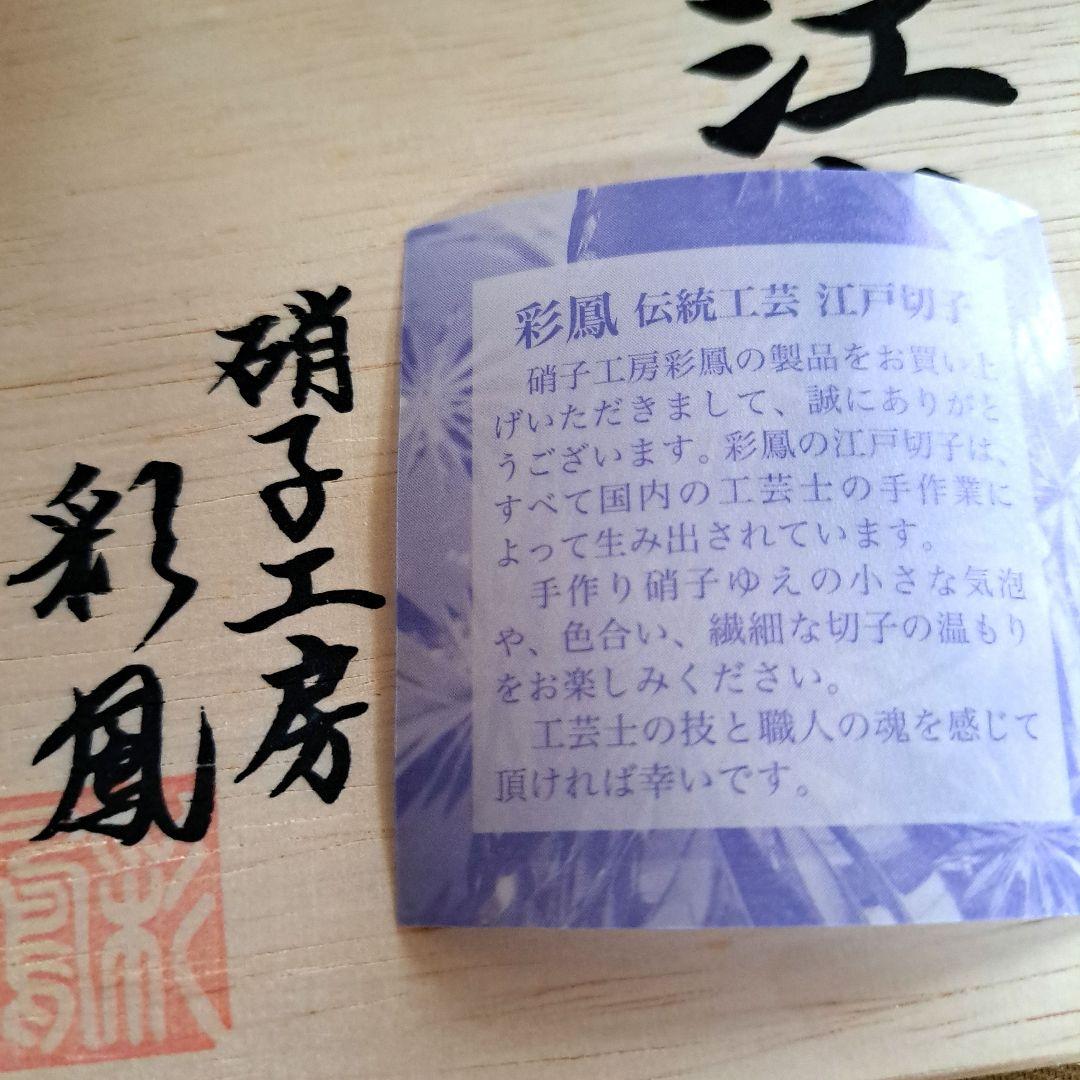 江
硝子工房
彩鳳
彩鳳 伝統工芸 江戸切子
硝子工房彩鳳の製品をお買い上
げいただきまして、誠にありがと
うございます。彩鳳の江戸切子は、
すべて国内の工芸士の手作業に
よって生み出されています。
手作り硝子ゆえの小さな気泡
や、色合い、繊細な切子の温もり
をお楽しみください。
工芸士の技と職人の魂を感じて
頂ければ幸いです。